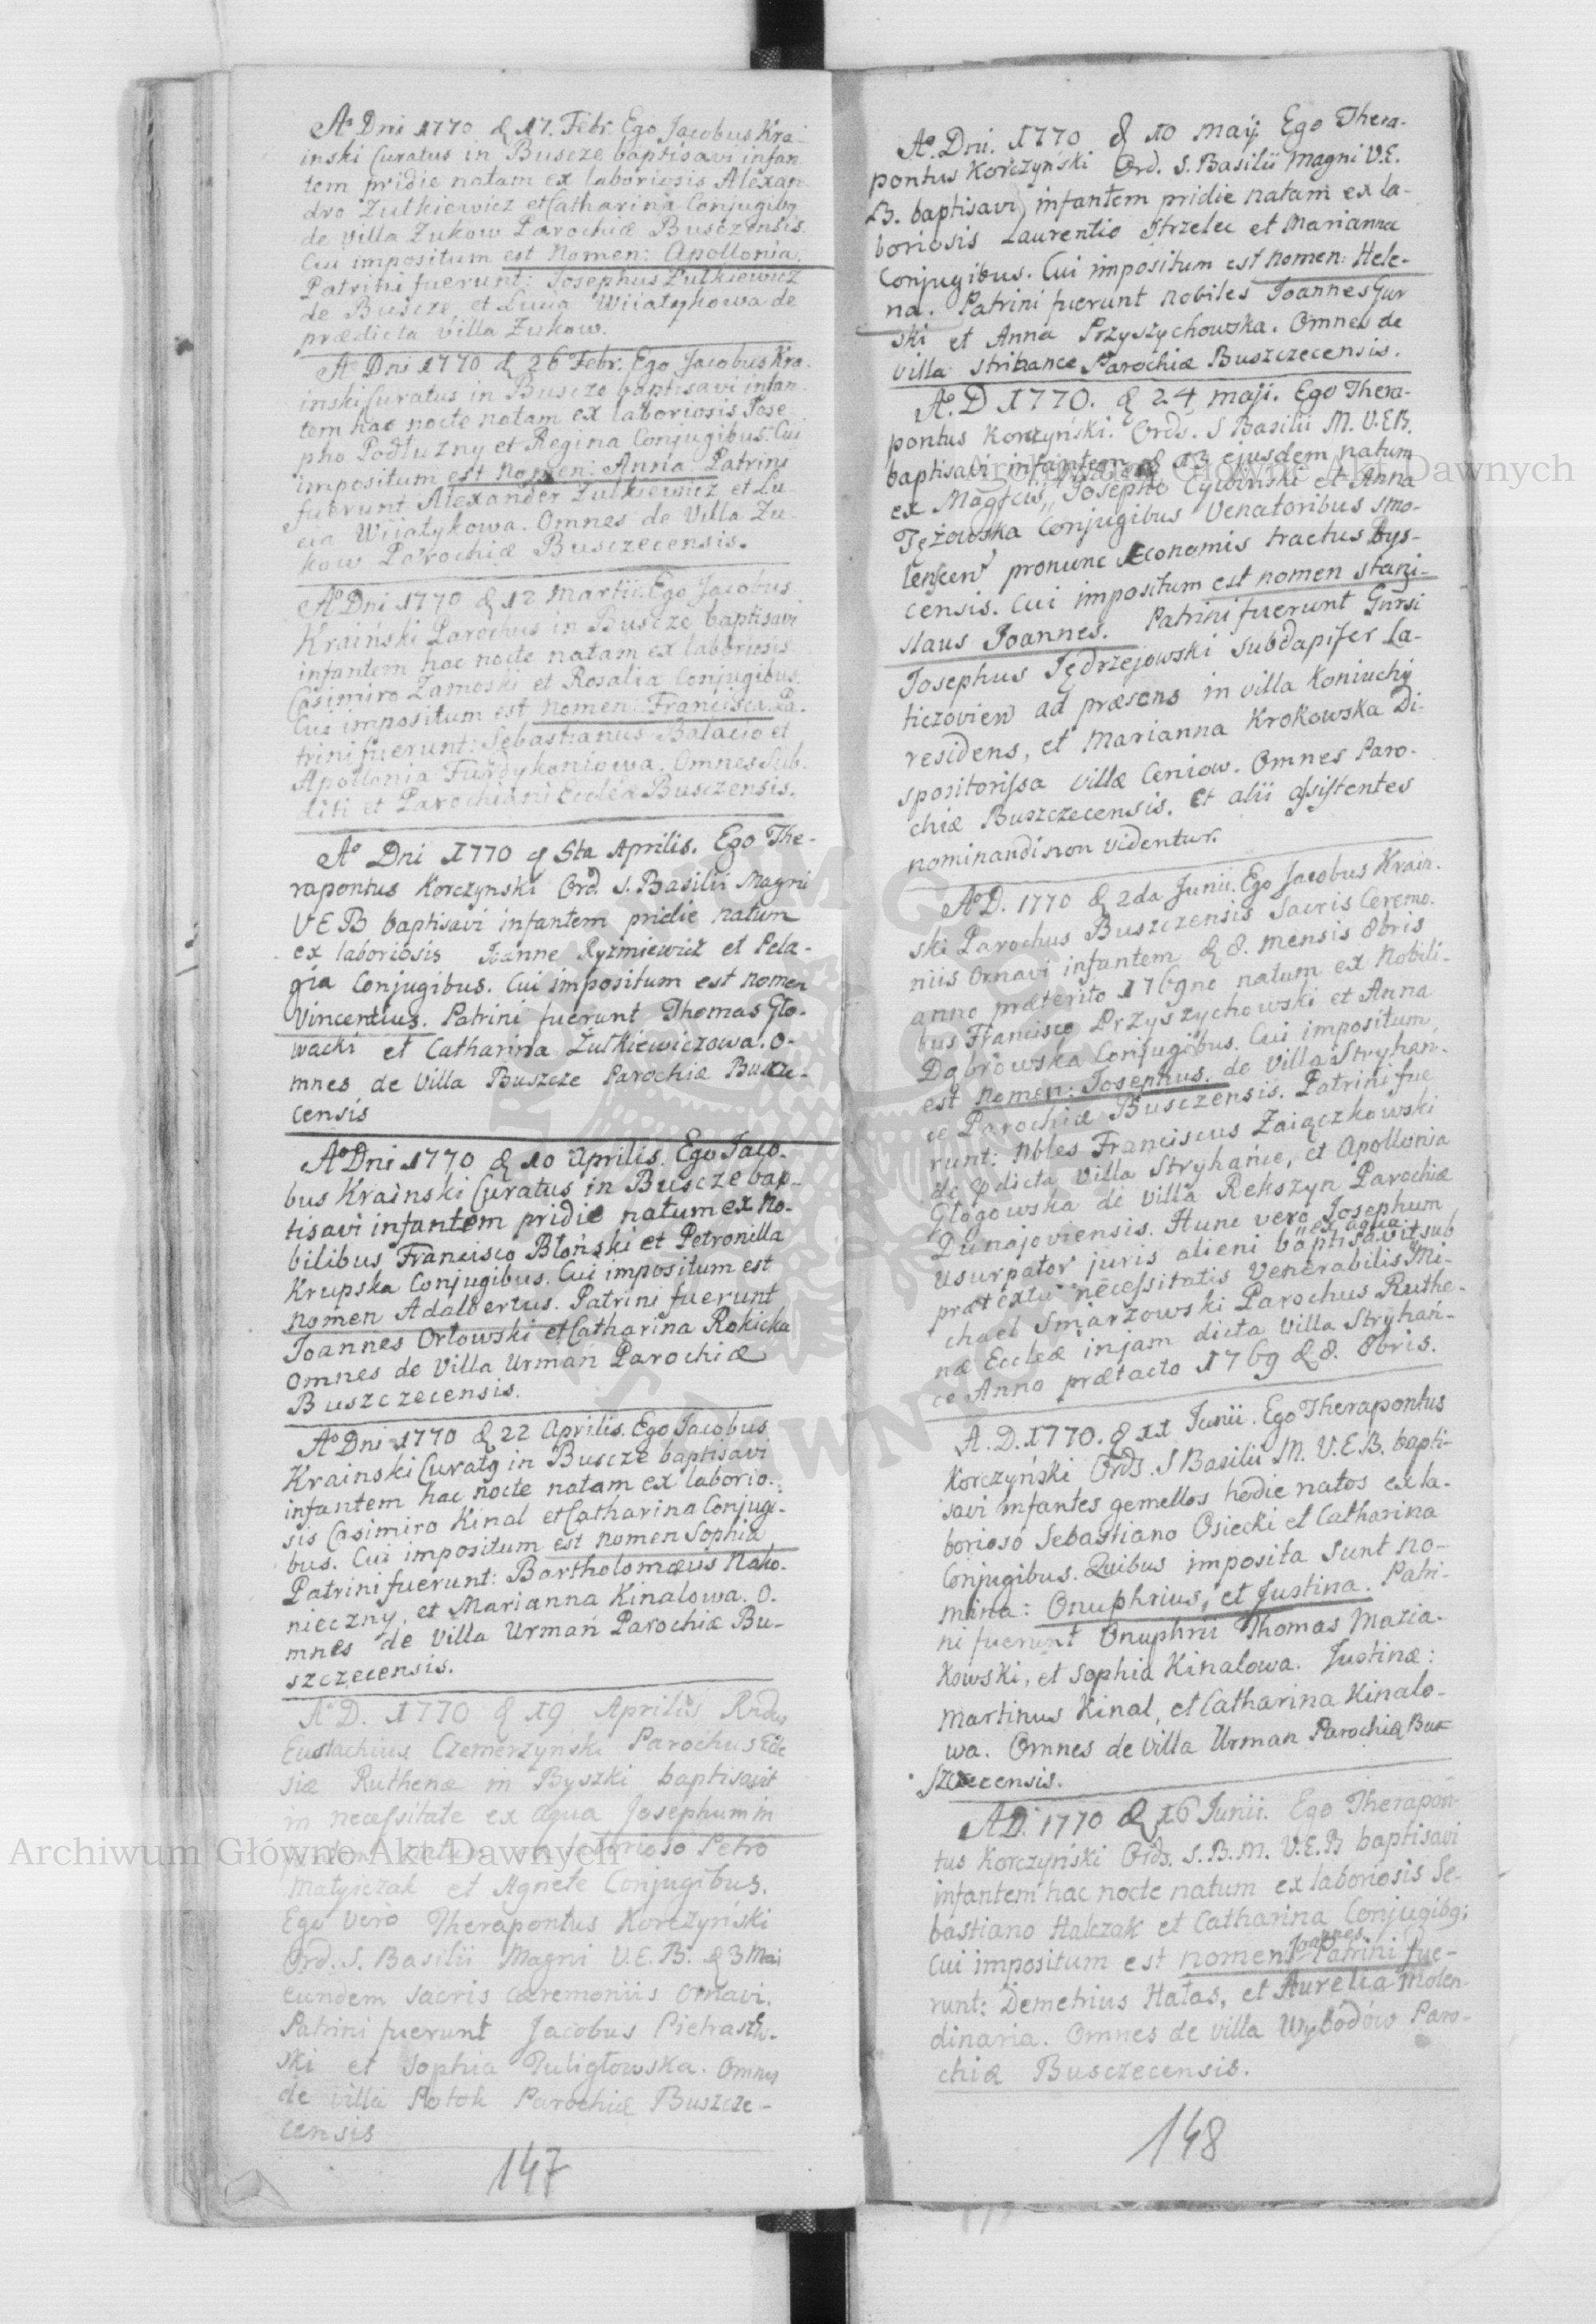 Aº Dni 1770 d 17. Febr. Ego Jacobus Kra-
inski Curatus in Buscze baptisavi infan
tem pridie natam ex laboriosis Alexan-
dro Zulkiewicz et Catharina Conjugibq
de Villa Zukow Parochiæ Busczensis.
Cui impositum est Nomen: Apollonia.
Patrini fuerunt: Josephus Zulkiewicz
de Buscze et Lucia Wiiatykowa de
prædicta villa Zukow.
Aº Dni 1770 d 26 Febr. Ego Jacobus Kra-
inski Curatus in Buscze baptisavi infan-
tem hac nocte natam ex laboriosis Jose
pho Podłuzny et Regina Conjugibus. Cui
impositum est Nomen: Anna. Patrini
fuerunt Alexander Zulkiewicz et Lu-
cia Wiiatykowa. Omnes de Villa Zu-
kow Parochiæ Busczecensis.
Aº Dni 1770 d 12 Martii. Ego Jacobus
Kraiński Parochus in Buscze baptisavi
infantem hac nocte natam ex laboriosis
Casimiro Zamoski et Rosalia Conjugibus.
Cui impositum est nomen: Francisca. Pa-
trini fuerunt: Sebastianus Balacio et
Apollonia Furdykoniowa. Omnes Sub-
diti et Parochiani Eccleæ Busczensis.
Aº Dni 1770 d 5ta Aprilis. Ego The-
rapontus Korczynski Ord. S. Basilii Magni
V E B baptisavi infantem pridie natum
ex laboriosis Joanne Ryzniewicz et Pela-
gia Conjugibus. Cui impositum est nomen
Vincentius. Patrini fuerunt Thomas Gło-
wacki et Catharina Żulkiewiczowa. O-
mnes de Villa Buszcze Parochiæ Buszcze-
censis
Aº Dni 1770 d 10 Aprilis. Ego Jaco-
bus Krainski Curatus in Buscze bap-
tisavi infantem pridie natum ex No-
bilibus Francisco Błoński et Petronilla
Krupska Conjugibus. Cui impositum est
nomen Adalbertus. Patrini fuerunt
Joannes Orłowski et Catharina Rokicka
omnes de Villa Urmań Parochiæ
Buszczecensis.
Aº Dni 1770 d 22 Aprilis. Ego Jacobus
Krainski Curatq in Buscze baptisavi
infantem hac nocte natam ex laborio-
sis Casimiro Kinal et Catharina Conjugi-
bus. Cui impositum est nomen Sophia
Patrini fuerunt: Bartholomæus Nako-
nieczny, et Marianna Kinalowa. O-
mnes de Villa Urmań Parochiæ Bu-
szczecensis.
Aº D. 1770 d 19 Aprilis Rndus
Eustachius Czemerzyński Parochus Ecle
siæ Ruthenæ in Byszki baptisavit
in necessitate ex aqua Josephum in
natum ex laborioso Petro
Matysczak et Agnete Conjugibus.
Ego vero Therapontus Korczyński
Ord. S. Basilii Magni V.E.B. d 3 Mai
eundem sacris cæremoniis ornavi.
Patrini fuerunt Jacobus Pietraszew-
ski et Sophia Puligłowska. Omnes
de villa Potok Parochiæ Buszcze-
censis
147
Aº. Dni. 1770 d 10 Maÿ Ego Thera-
pontus Korczyński Ord. S. Basilii Magni V.E.
B. baptisavi infantem pridie natam ex la-
boriosis Laurentio Strzelec et Marianna
Conjugibus. Cui impositum est Nomen: Hele-
na. Patrini fuerunt Nobiles Joannes Gur
ski et Anna Przyszychowska. Omnes de
villa Strihance Parochiæ Buszczecensis.
Aº. D 1770. d 24 maji. Ego Thera-
pontus Korczyński. Ords. S Basilii M. V.E.B.
baptisavi infantem d 13 ejusdem natum
ex Magfcis Josepho Cywiński et Anna
Jężowska Conjugibus Venatoribus Smo-
lenscen pronunc Æconomis tractus Bys-
censis. Cui impositum est nomen Stani-
slaus Joannes. Patrini fuerunt Gnrsi
Josephus Jędrzejowski Subdapifer La-
ticzovien ad præsens in villa Koniuchÿ
residens, et Marianna Krokowska Di-
spositorissa villæ Ceniow. Omnes Paro-
chiæ Buszczecensis. Et alii assistentes
nominandi non videntur.
Aº D. 1770 d 2da Junii. Ego Jacobus Krain-
ski Parochus Buszczensis Sacris Ceremo-
niis ornavi infantem d 8. mensis 8bris
anno præterito 1769no natum ex Nobili-
bus Francisco Przyszychowski et Anna
Dąbrowska Conjugibus. Cui impositum
est Nomen: Josephus. de Villa Stryhan-
ce Parochiæ Busczensis. Patrini fue
runt: Nbles Franciscus Zaiączkowski
de pdicta Villa Stryhańce, et Apollonia
Głogowska de Villa Rekszyn Parochiæ
Dunajoviensis. Hunc vero Josephum
usurpator juris alieni ex aqua baptisavit sub
prætextu necessitatis Venerabilis Mi-
chael Smarzowski Parochus Ruthe-
næ Eccleæ in jam dicta Villa Stryhań-
ce Anno prætacto 1769 d 8. 8bris.
A. D. 1770. d 11 Junii. Ego Therapontus
Korczyński Ords. S Basilii M. V.E.B. bapti-
savi infantes gemellos hodie natos ex la-
borioso Sebastiano Osiecki et Catharina
Conjugibus. Quibus imposita sunt no-
mina: Onuphrius, et Justina. Patri-
ni fuerunt Onuphrii Thomas Mazia-
kowski, et Sophia Kinalowa. Justinæ:
Martinus Kinal, et Catharina Kinalo-
wa. Omnes de villa Urman Parochiæ Bu-
szczecensis.
A D. 1770 d 16 Junii. Ego Therapon-
tus Korczyński Ords. S. B. M. V.E.B baptisavi
infantem hac nocte natum ex laboriosis Se-
bastiano Halczak et Catharina Conjugibq:
cui impositum est nomen Joannes Patrini fue-
runt: Demetrius Hałas, et Aurelia Molen-
dinaria. Omnes de villa Wybódów Paro-
chiæ Busczecensis.
148
Archiwum Główne Akt Dawnych
Archiwum Główne Akt Dawnych